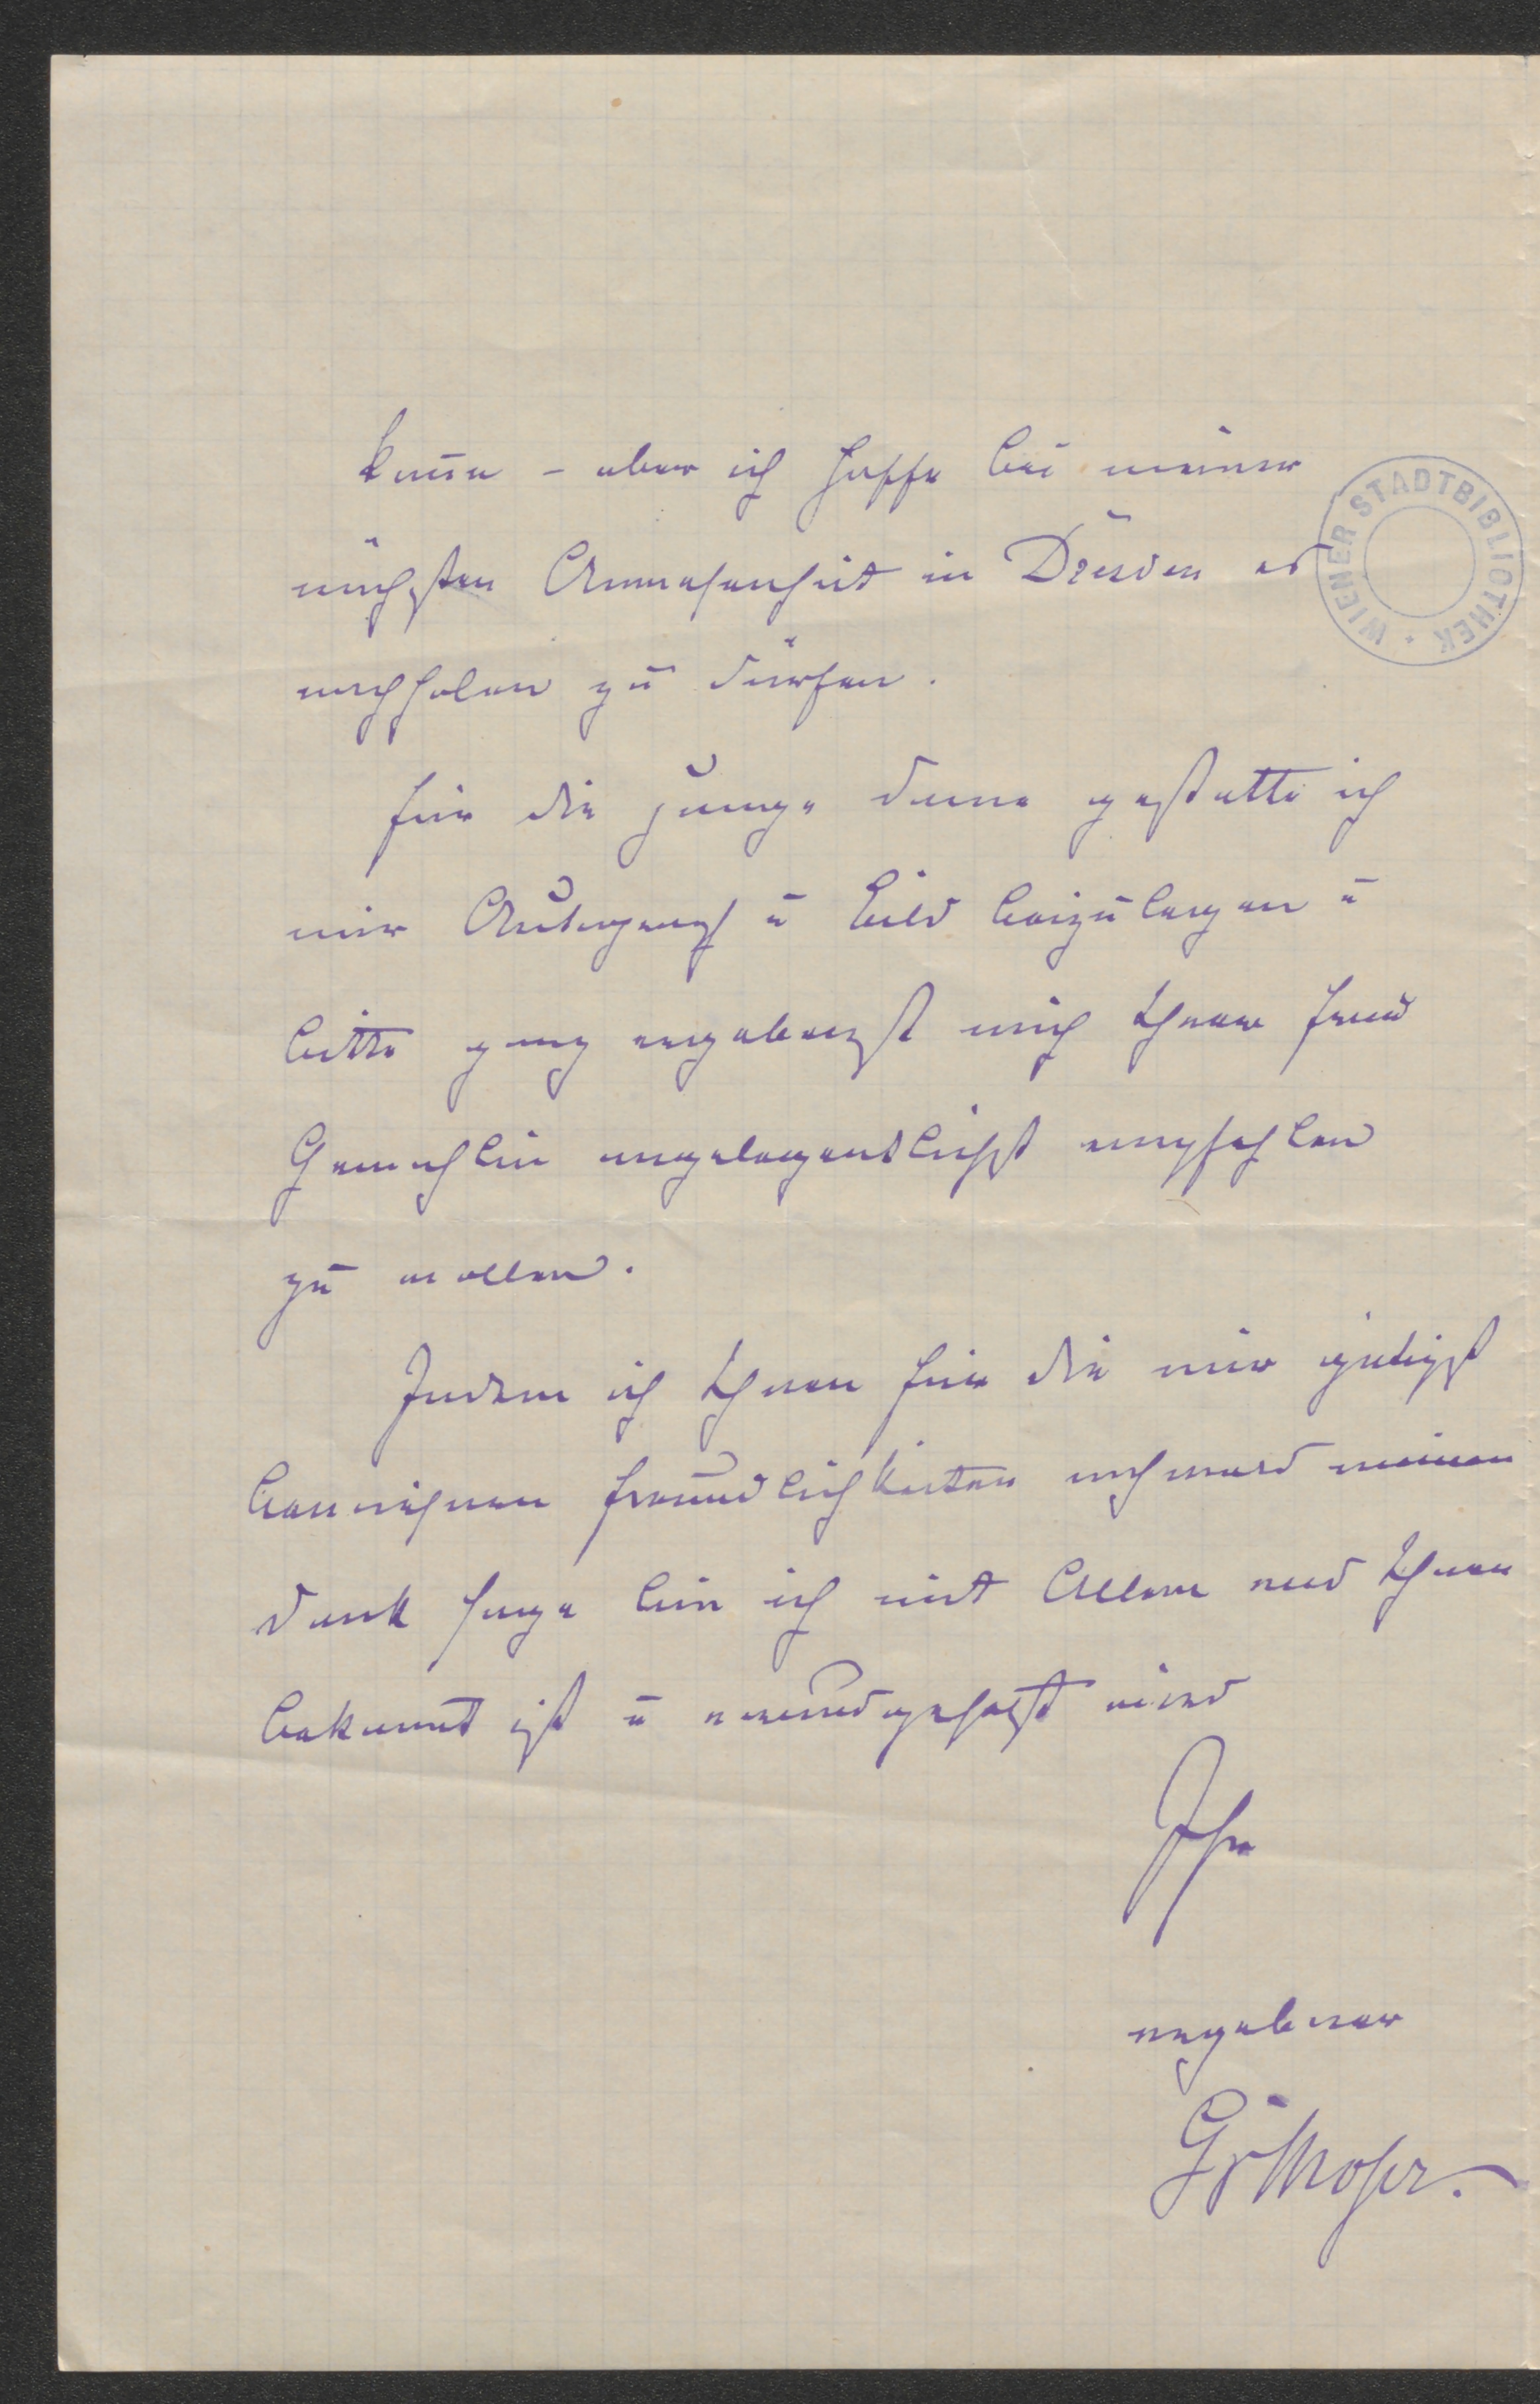 kann – aber ich hoffe bei meiner
nächsten Anwesenheit in Dresden es
nachholen zu dürfen.
Für die junge Dame gestatte ich
mir Autograph u Bild beizulegen u
bitte ganz ergebenst mich Ihrer Frau
Gemahlin angelegentlichst empfehlen
zu wollen.
Indem ich Ihnen für die mir gütigst
bewiesenen Freundlichkeiten nochmals meinen
Dank sage bin ich mit Allem was Ihnen
bekannt ist u vorausgesetzt wird
Ihr
ergebner
GvMoser.
WIENER STADTBIBLIOTHEK